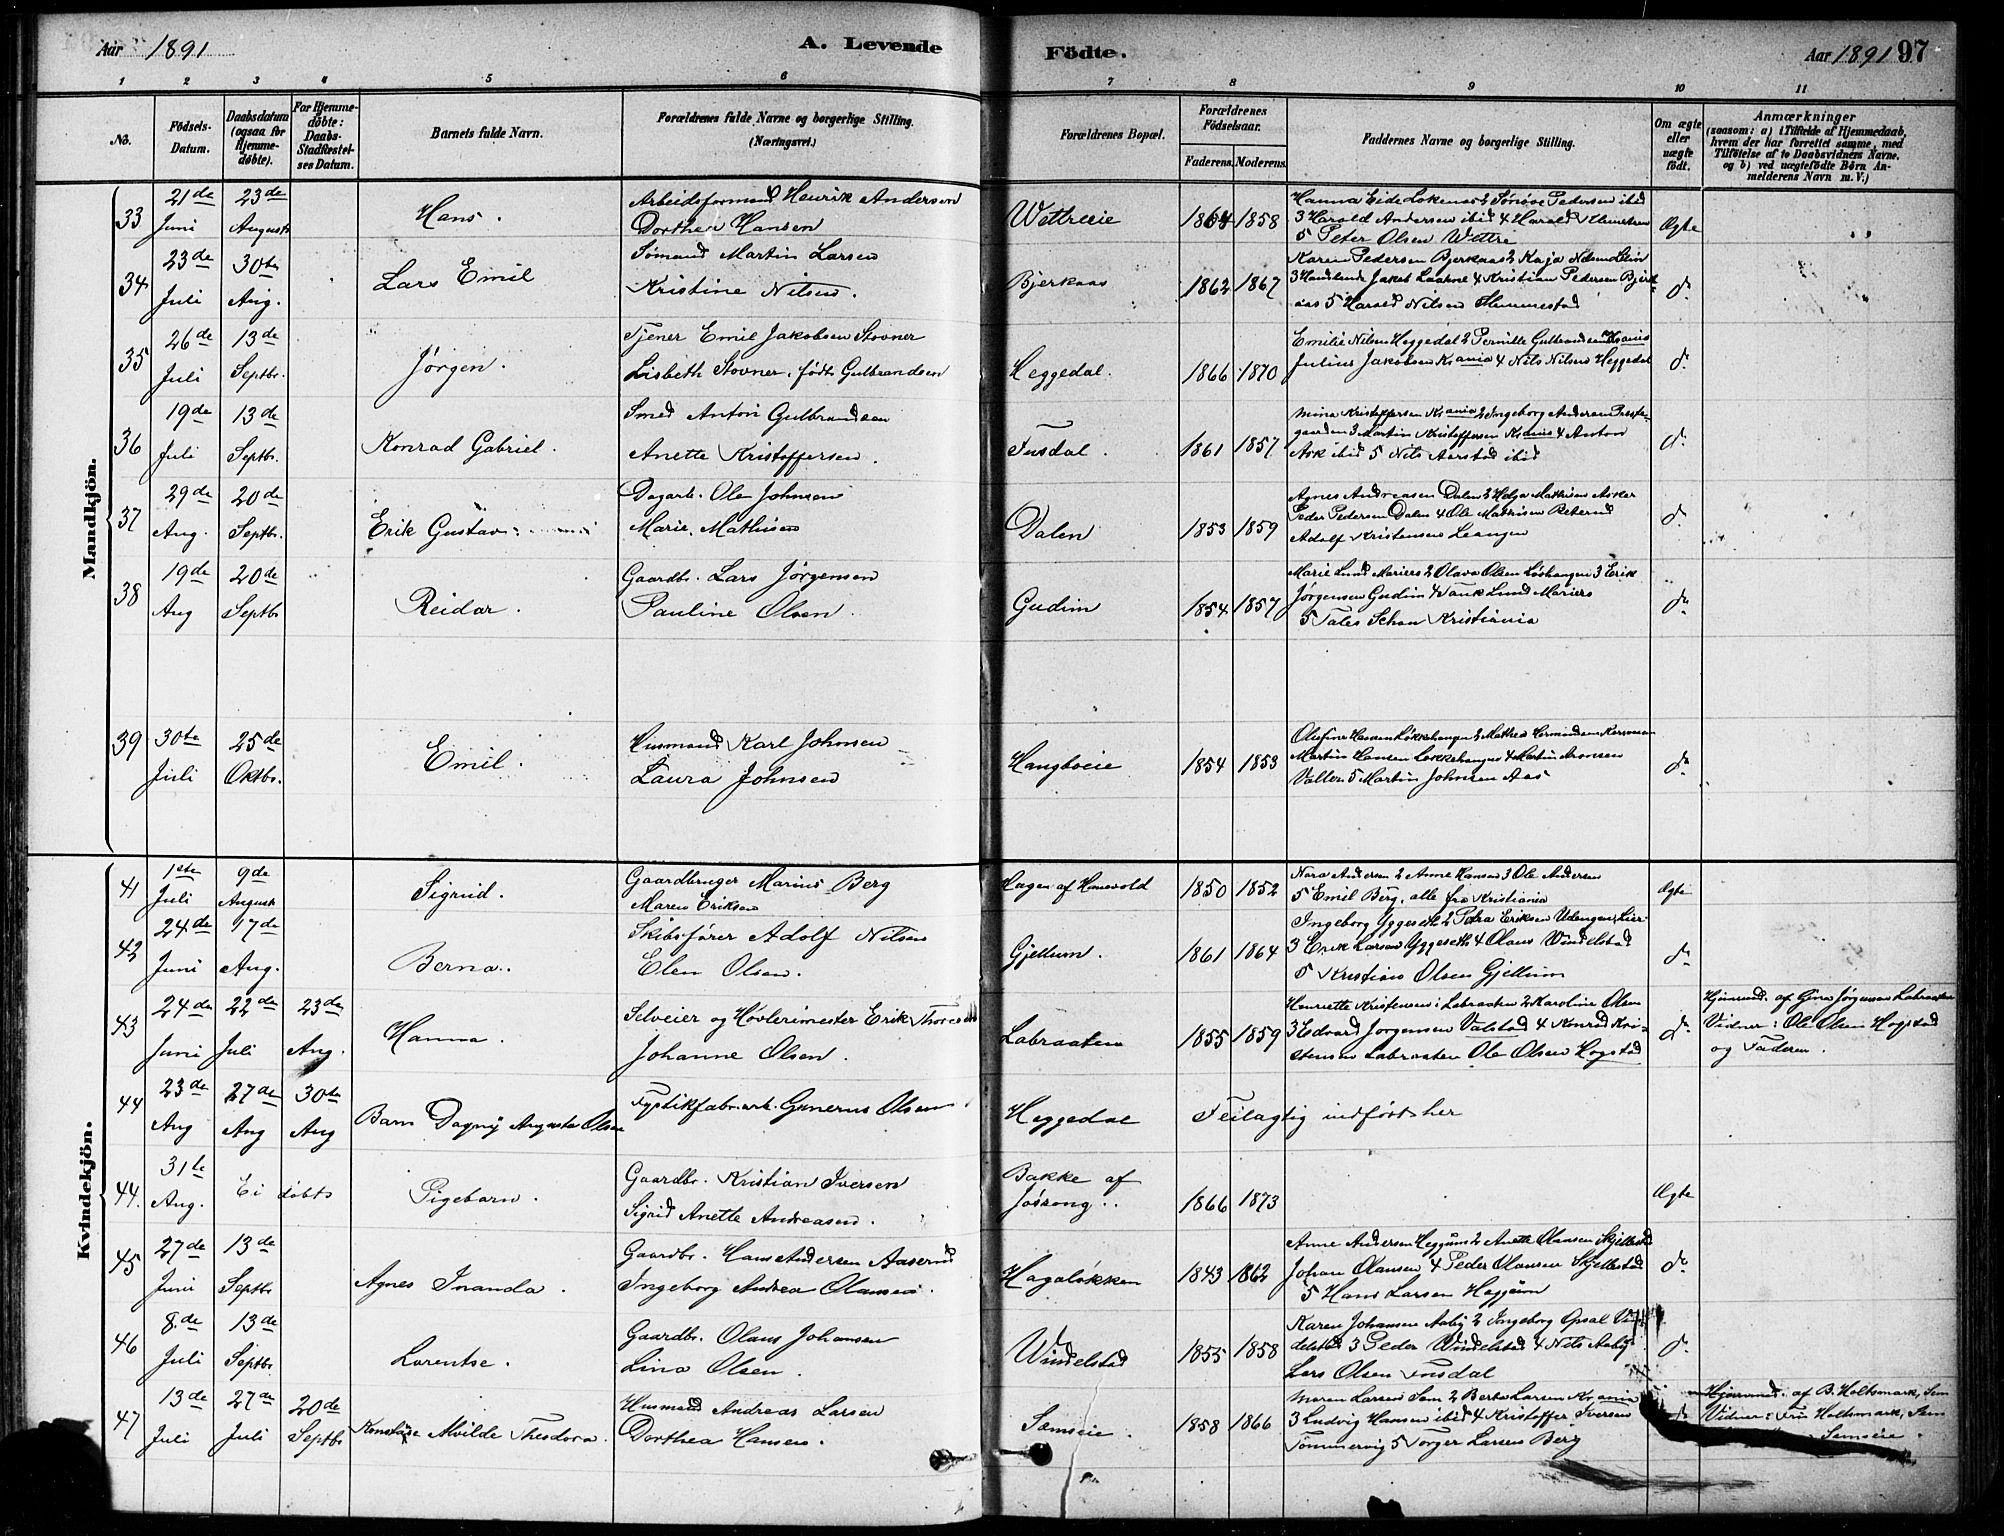 Aar 1891
A. Levende
Födte.
Aar 1891 97
1 2 3 4 5 6 7 8 9 10 11
No.
Födsels-Datum.
Daabsdatum (ogsaa for Hjemmedöbte).
For Hjemmedöbte: Daabs-Stadfæstelses Datum.
Barnets fulde Navn.
Forældrenes fulde Navne og borgerlige Stilling. (Næringsvei.)
Forældrenes Bopæl.
Forældrenes Födselsaar.
Faderens. Moderens.
Faddernes Navne og borgerlige Stilling.
Om ægte eller uægte født.
Anmærkninger
(saasom: a) i Tilfælde af Hjemmedaab,
hvem der har forrettet samme, med
Tilföielse af to Daabsvidners Navne.
og b) ved uægtefödte Börn An-
melderens Navn m. V.)
Mandkjön.
33 21de Juni 23de August Hans. Arbeidsformand Henrik Andersen
Dorthea Hansen Wettreeie 1864 1858
3 Harald Andersen ibid 4 Harald
5 Peter Olsen Wettre Ægte
34 23de Juli 30te Aug. Lars Emil Sømand Martin Larsen
Kristine Nilsen. Bjerkaas 1862 1867 Karen Pedersen Bjerkaas 2 Kaja Nilsen
3 Handlende Jakob 4 Kristian Pedersen Bjerk-
aas 5 Harald Nilsen Slemmestad do
35 26de Juli 13de Septbr. Jørgen. Tjener Emil Jakobsen Stovner
Lisbeth Stovner, født Gulbrandsen Heggedal. 1866 1870 Emilie Nilsen Heggedal 2 Pernille Gulbrandsen Krania
Julius Jakobsen Krania 4 Nils Nilsen Heggedal do
36 19de Juli 13de Septbr. Konrad Gabriel. Smed Anton Gulbrandsen
Anette Kristoffersen. Fusdal. 1861 1857 Mina Kristoffersen Krania 2 Ingeborg Andersen Preste-
gaarden 3 Martin Kristoffersen Krania 4 Anton
Ask ibid 5 Nils Aarstad ibid do
37 29de Aug. 20de Septbr. Erik Gustav Dagarb. Ole Johnsen
Marie Mathisen Dalen 1853 1859 Agnes Andreasen Dalen 2 Helga Mathisen Asker
Peder Pedersen Dalen 4 Ole Mathisen
Adolf Kristensen Leangen do
38 19de Aug 20de Septbr Reidar. Gaardbr. Lars Jørgensen
Pauline Olsen. Gudim 1854 1857 Marie Lund Mariero 2 Olava Olsen 3 Erik
Jørgensen Gudim 4 Lund Mariero
5 Schou Kristiania do
39 30te Juli 25de Oktbr. Emil. Husmand Karl Johnsen
Laura Johnsen Haugboeie 1854 1853 Olufine Hansen Løkkehaugen 2 Mathea
Martin Hansen Løkkehaugen 4 Martin
Vallen 5 Martin Johnsen Aas do
Kvindekjön.
41 1ste Juli 9de August Sigrid. Gaardbruger Marius Berg
Maren Eriksen Hagen af Hanevold 1850 1852 Nora Andersen 2 Anne Hansen 3 Ole Andersen
5 Emil Berg, alle fra Kristiania Ægte
42 24de Juni 17de Aug. Berna. Skibsfører Adolf Nilsen
Elen Olsen. Gjellum. 1861 1864 Ingeborg Yggeseth 2 Petra Eriksen Udengen, Lier
3 Erik Larsen Yggeseth 4 Olaus Vindelstad
5 Kristian Olsen Gjellum do
43 24de Juni 22de Juli 23de Aug. Hanna. Selveier og Høvlerimester Erik Thoresen
Johanne Olsen. Labraaten 1855 1859 Henriette Kristensen i Labraaten 2 Karoline Olsen
3 Edvard Jorgensen Valstad 4 Konrad Kri-
stensen Labraaten Ole Olsen Hogstad do Hjemmed. af Gina Jørgensen Labraaten
Vidner: Ole Olsen Hogstad
og Faderen.
44 23de Aug 27de Aug 30te Aug Barn Dagny Augusta Olsen Fyrstikfabr.arb. Gunerus Olsen Heggedal Feilagtig indført her
44. 31te Aug. Ei døbt Pigebarn. Gaardbr. Kristian Iversen
Sigrid Anette Andreasen. Bakke af
Jøssong 1866 1873 Ægte
45 27de Juni 13de Septbr Agnes Inanda. Gaardbr. Hans Andersen Aaserud
Ingeborg Andrea Olausen. Hagaløkken 1843 1862 Anne Andersen Heggum 2 Anette Olausen Skjellestad
Johan Olausen 4 Peder Olausen Skjellestad
5 Hans Larsen Heggum do
46 8de Juli 13de Septbr Lorentse. Gaardbr. Olaus Johansen
Lina Olsen. Windelstad 1855 1858 Karen Johansen Aaby 2 Ingeborg Opsal Vin-
delstad 3 Peder Windelstad 4 Nils Aaby
Lars Olsen Fusdal do
47 13de Juli 27de Juli 20de Septbr Konstanse Alvilde Theodora. Husmand Andreas Larsen
Dorthea Hansen. Semseie. 1858 1866 Maren Larsen Sem 2 Berta Larsen Krania
3 Ludvig Hansen ibid 4 Kristoffer Iversen
Tømmervig 5 Torger Larsen Berg do Hjemmed. af B. Holtsmark, Sem
Vidner: Fru Holtsmark, Sem
Semseie.